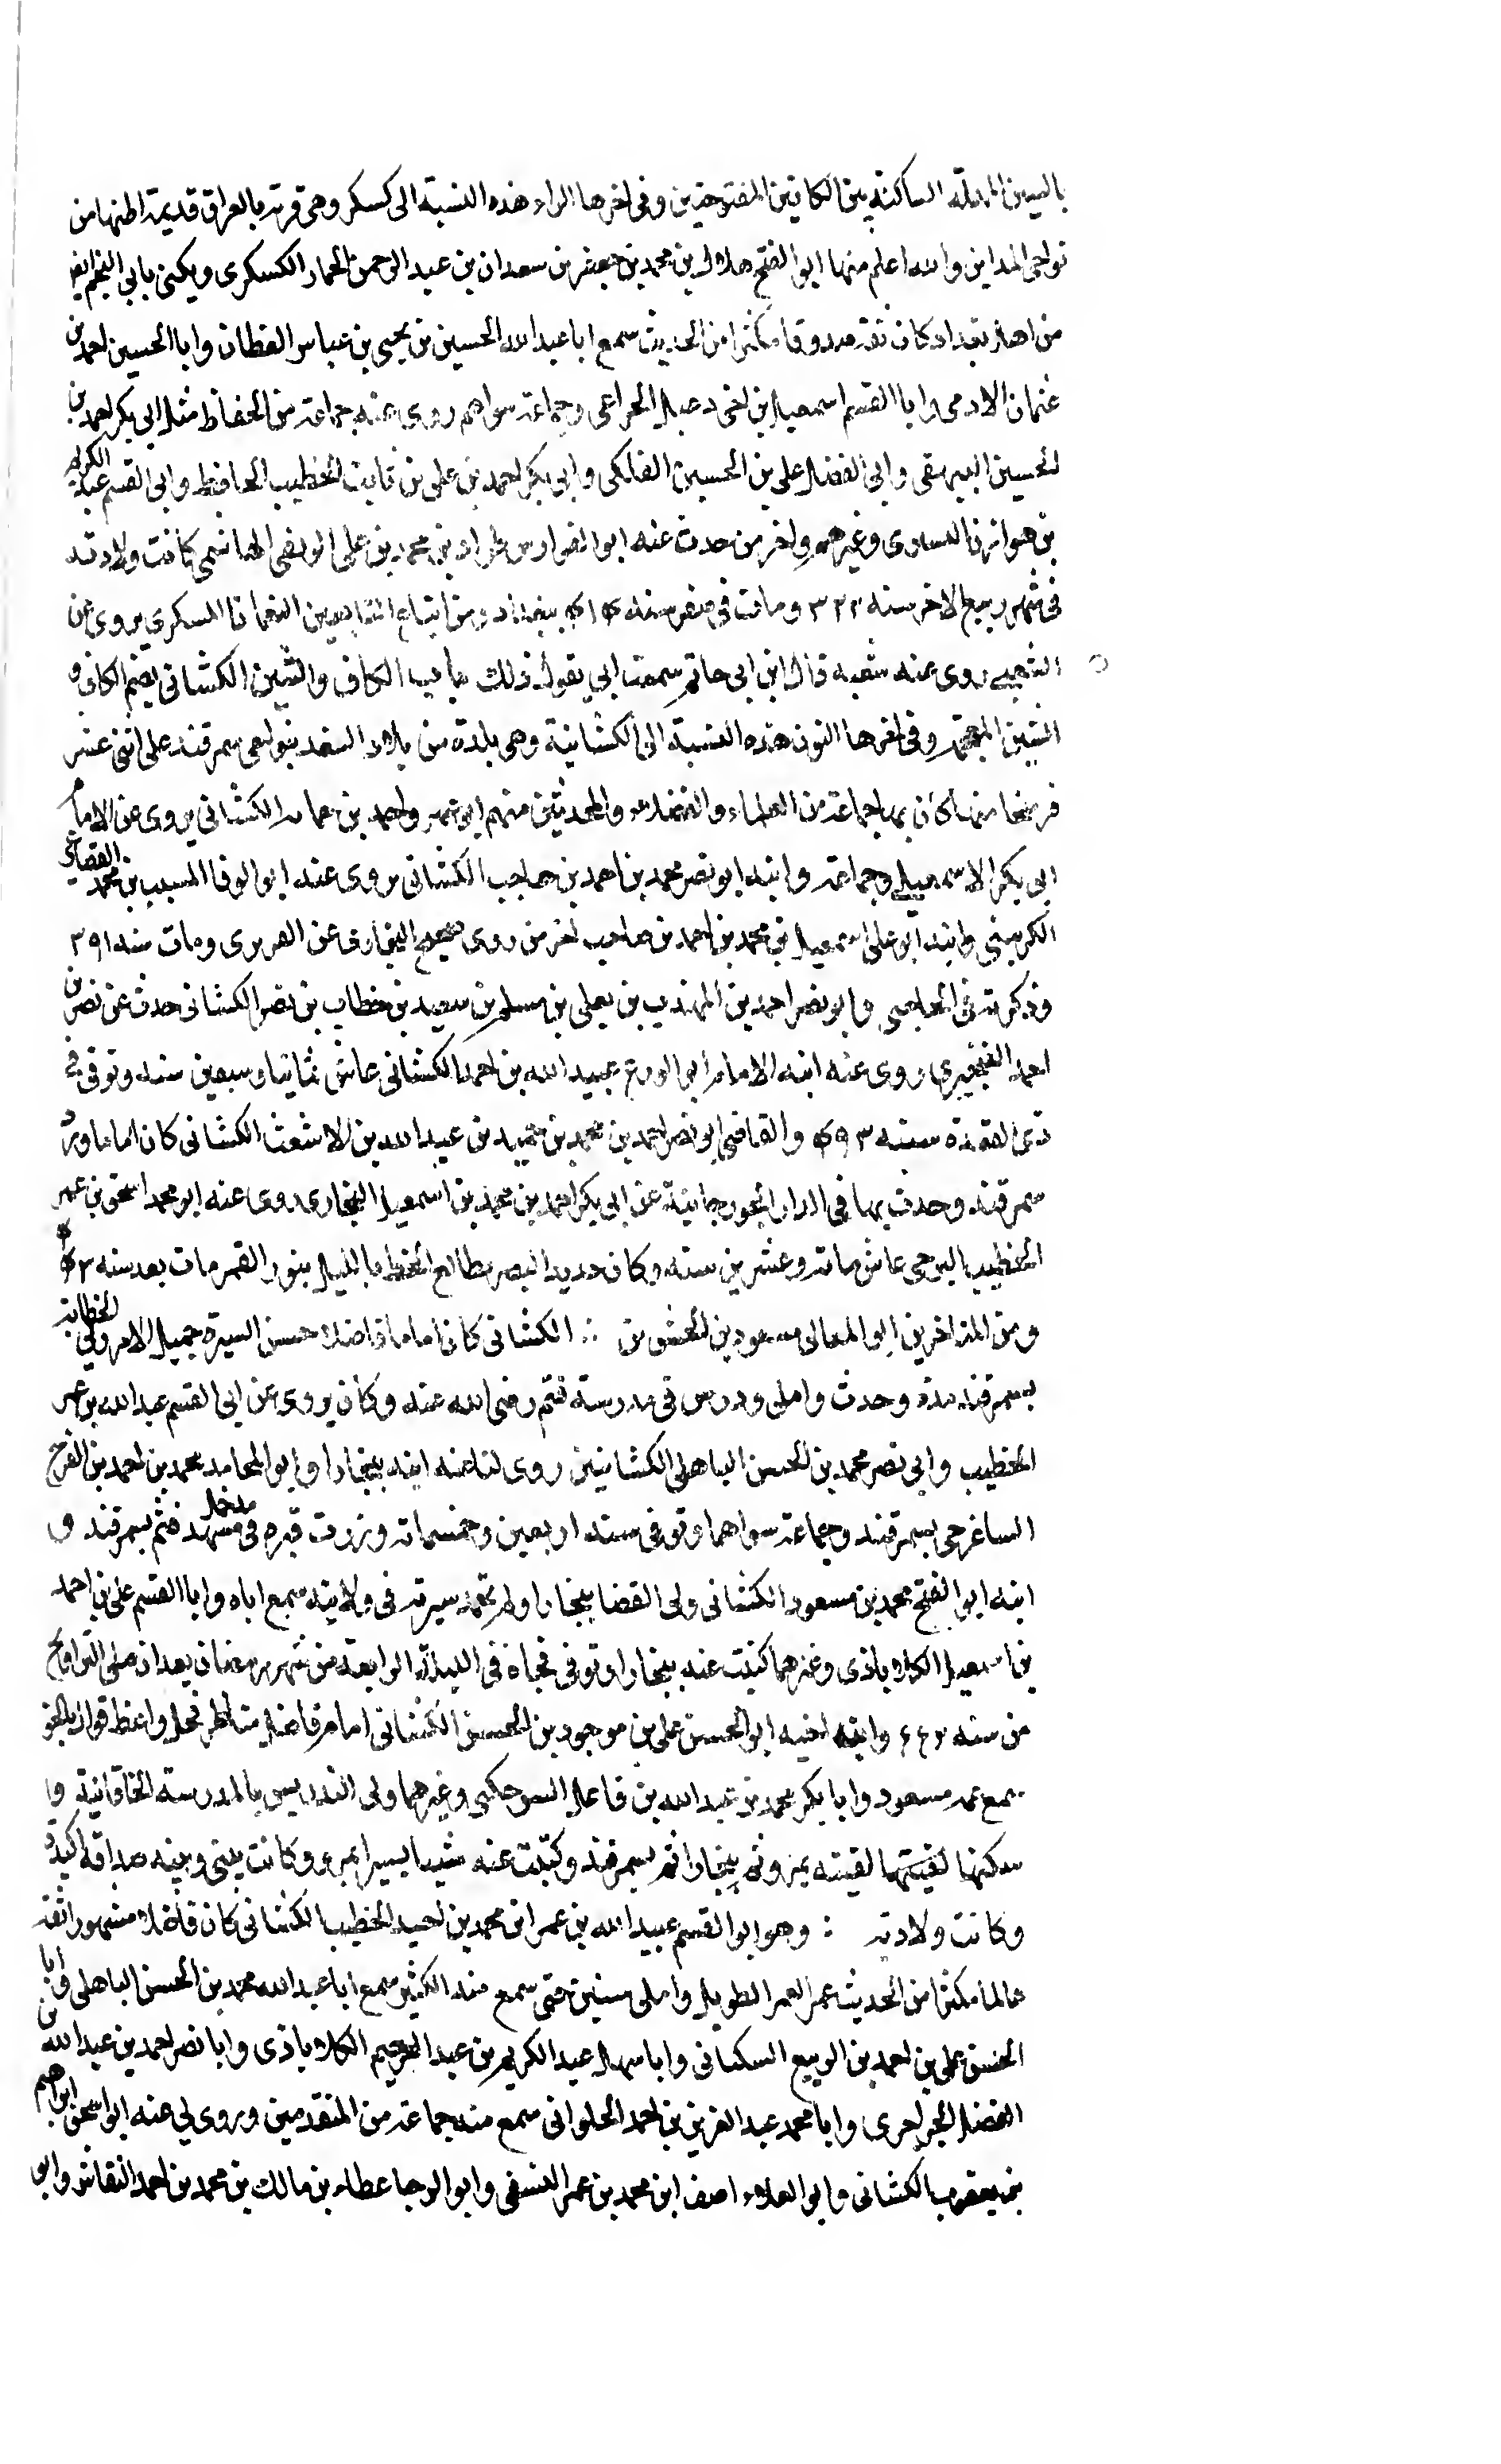 بالسين المهملة الساكنة بين الكافين المفتوحتين وفى اخرها الراء هذه النسبة الى كسكر وهى قرية بالعراق قديمة اظنها من
نواحى المداين والله اعلم منها ابو الفتح هلال بن محمد بن جعفر بن سعدان بن عبد الرحمن الحفار الكسكرى ويكنى بابى النجم ايضا
من اهل بغداد كان ثقة صدوقا مكثرا من الحديث سمع ابا عبد الله الحسين بن يحيى بن عباس القطان وابا الحسين احمد بن
عثمان الادمى وابا القسم اسمعيل بن اخى دعبل الخزاعى وجماعة سواهم روى عنه جماعة من الحفاظ مثل ابى بكر احمد بن
الحسين البيهقى وابى الفضل على بن الحسين الفلكى وابى بكر احمد بن على بن ثابت الخطيب الحافظ وابى القسم عبد الكريم
بن هوازن القشيرى وغيرهم واخر من حدث عنه ابو الفوارس طراد بن محمد بن على الزينبى الهاشمى كانت ولادته
فى شهر ربيع الاخر سنه ٣٢٢ ومات فى صفر سنه ٤١٤ ببغداد ومن اتباع التابعين النعمان الكسكري يروى عن
الشعبى روى عنه شعبه قال ابن ابى حاتم سمعت ابي يقول ذلك باب الكاف والشين الكشانى بضم الكاف و
الشين المعجمة وفى اخرها النون هذه النسبة الى الكشانية وهى بلدة من بلاد السغد بنواحى سمرقند على اثنى عشر
فرسخا منها كان بها جماعة من العلماء والفضلاء والمحدثين منهم ابو عمرو احمد بن حاجب الكشانى يروى عن الامام
ابى بكر الاسمعيلى وجماعة وابنه ابو نصر محمد بن احمد بن حاجب الكشانى يروى عنه ابو الوفا المسيب بن محمد القصارى
الكرمينى وابنه ابو على اسمعيل بن محمد بن احمد بن حاجب اخر من روى صحيح البخارى عن الفربرى ومات سنه ٣٩١
وذكرته فى الحاجبى وابو نصر احمد بن المهذب بن يعلى بن مسلم بن سعيد بن خطاب بن نصر الكشانى حدث عن نصر بن
احمد روى عنه ابنه الامام عبيد الله بن احمد الكشانى عاش ثمانيا وسبعين سنه وتوفى فى
ذى القعدة سنه ٤٩٣ والقاضى ابو نصر احمد بن محمد بن حميد بن عبد الله بن الاشعث الكشانى كان اماما ورد
سمرقند وحدث بها فى الدار الجوزجانية عن ابى بكر احمد بن محمد بن اسمعيل البخارى روى عنه ابو محمد اسحق بن عمر
الخطيب عاش مائة وعشرين سنه وكان حديد البصر يطالع الخط بالليل بنور القمر مات بعد سنه
ومن المتاخرين ابو المعالى مسعود بن الحسن بن ∴ الكشانى كان اماما فاضلا حسن السيرة جميل الامر ولى الخطابة
بسمرقند مدة وحدث واملى ودرس فى مدرسة قثم رضى الله عنه وكان يروى عن ابى القسم عبيد الله بن عمر
الخطيب وابى نصر محمد بن الحسن الباهلى الكشانيين روى لنا عنه ابنه ببخارا وابو المحامد محمد بن احمد بن الفرج
الساغرجى بسمرقند وجماعة سواهما وتوفى سنه اربعين وخمسمائة وزرت قبره فى مدخل مشهد قثم بسمرقند و
ابنه ابو الفتح محمد بن مسعود الكشانى ولى القضا ببخارا ولم تحمد سيرته فى ولايته سمع اباه وابا القسم على بن احمد
بن اسمعيل الكلاباذى وغيرهما كتبت عنه ببخارا وتوفى فجاة فى الليلة الرابعة من شهر رمضان بعد ان صلى التراويح
من سنه وابن اخيه ابو الحسن على بن موجود بن الحسين الكشانى امام فاضل مناظر فحل واعظ قوال بالحق
سمع عمه مسعود وابا بكر محمد بن عبد الله بن فاعل السرخكتى وغيرهما ولى التدريس بالمدرسة الخاقانية وا
سكنها لقيته بمرو ثم ببخارا ثم بسمرقند وكتبت عنه شيئا يسيرا بمرو وكانت بينى وبينه صداقة اكيدة
وكانت ولادته : وهو ابو القسم عبيد الله بن عمر ابن محمد بن احيد الخطيب الكشانى كان فاضلا مشهورا ثقة
عالما مكثرا من الحديث عمر العمر الطويل واملى سنين حتى سمع منه الكثير سمع ابا عبد الله محمد بن الحسن الباهلى وابا
الحسن على بن احمد بن الربيع السنكباثى وابا سهل عبد الكريم بن عبد الرحيم الكلاباذى وابا نصر احمد بن عبد الله بن
الفضل وابا محمد عبد العزيز بن احمد الحلوانى سمع منه جماعة من المتقدمين وروى لي عنه ابو اسحق ابراهيم
بن يعقوب الكشانى وابو العلاء اصف ابن محمد بن عمر النسفى وابو الرجا عطاء بن مالك بن محمد بن احمد النقاش وابو